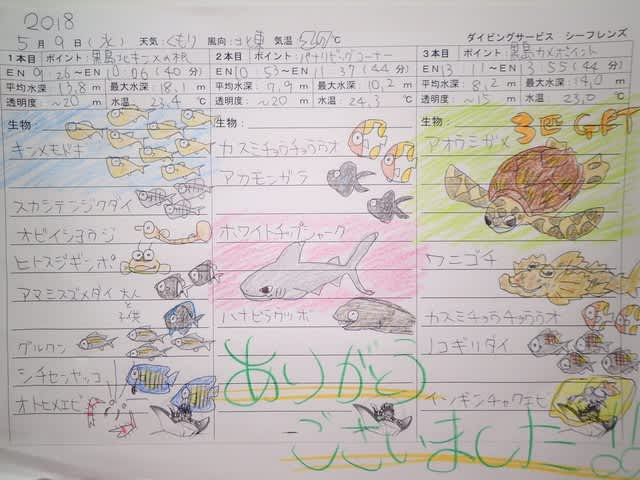 2018
5月9日(水) 天気:くもり 風向:北東 気温 ℃ ダイビングサービス シーフレンズ
1本目 ポイント:黒島北キンメの根
EN 9:26～EN 10:06 (40分)
平均水深 13.8 m 最大水深 18.1 m
透明度:～20m 水温 23.4 ℃
生物:
キンメモドキ
スカシテンジクダイ
オビイシヨウジ
ヒトスジギンポ
アマミスズメダイ 大人と子供
グルクン
シチセンヤッコ
オトヒメエビ
2本目 ポイント:パナリビッグコーナー
EN 10:53～EN 11:37 (44分)
平均水深 7.9 m 最大水深 10.2 m
透明度:～20m 水温 24.3 ℃
生物:
カスミチョウチョウウオ
アカモンガラ
ホワイトチップシャーク
ハナビラウツボ
3本目 ポイント:黒島カメポイント
EN 13:11～EN 13:55 (44分)
平均水深 8.2 m 最大水深 14.0 m
透明度:～15m 水温 23.0 ℃
生物: 3匹GET
アオウミガメ
ワニゴチ
カスミチョウチョウウオ
ノコギリダイ
イソギンチャクエビ
ありがとう
ございました!!